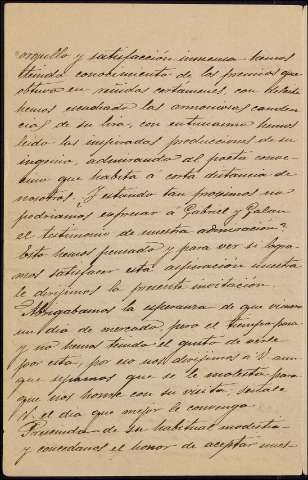 orgullo y satisfacción inmensa hemos
tenido conocimiento de los premios que
obtuvo en reñidos certámenes, con deleite
hemos escuchado las armoniosas caden
cias de su lira, con entusiasmo hemos
leido las inspiradas producciones de su
ingenio, admirando al poeta conve
cino que habita á corta distancia de
nosotros. ¿Y estando tan proximos no
podriamos expresar á Gabriel y Galan
el testimonio de nuestra admiracion?
Esto hemos pensado y para ver si logra
mos satisfacer esta aspiración nuestra
le dirijimos la presente invitación.
Abrigabamos la esperanza de que viniera
un dia de mercado, pero el tiempo pasa
y no hemos tenido el gusto de verle
por esta, por eso nos dirijimos á V. aun
que sepamos que se le molesta para
que nos honre con su visita, señale
V. el dia que mejor le convenga.
Prescinda de su habitual modestia
y concedanos el honor de aceptar nuest